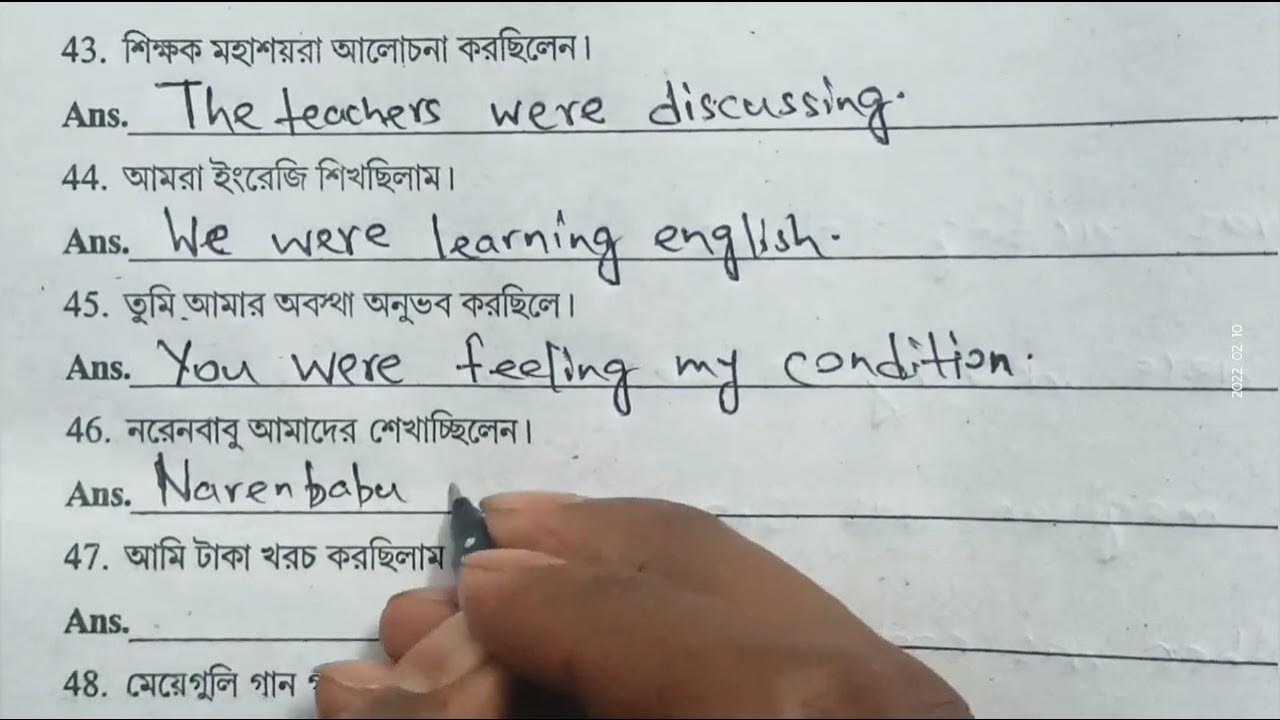 43. শিক্ষক মহাশয়রা আলোচনা করছিলেন।
Ans. The teachers were discussing.
44. আমরা ইংরেজি শিখছিলাম।
Ans. We were learning english.
45. তুমি আমার অবস্থা অনুভব করছিলে।
Ans. You were feeling my condition.
46. নরেনবাবু আমাদের শেখাচ্ছিলেন।
Ans. Narenbabu
47. আমি টাকা খরচ করছিলাম
Ans.
48. মেয়েগুলি গান
2022 02 10